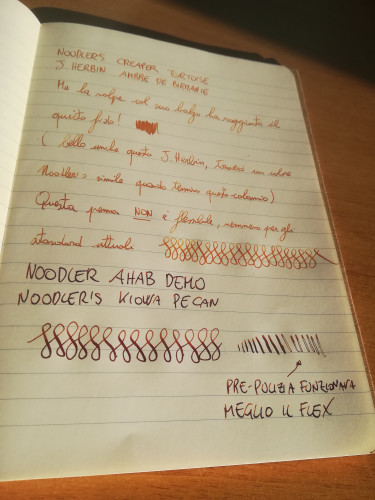 NOODLER'S CREAPER TORTOISE
J. HERBIN AMBRE DE BIRMANIE
Ma la volpe col suo balzo ha raggiunto il
quieto fido!
(bello anche questo J. Herbin, un colore
Noodler's simile quando termino questo calamaio)
Questa penna NON è flessibile, nemmeno per gli
standard attuali
NOODLER AHAB DEMO
NOODLER'S KIOWA PECAN
PRE-PULIZIA FUNZIONAVA
MEGLIO IL FLEX